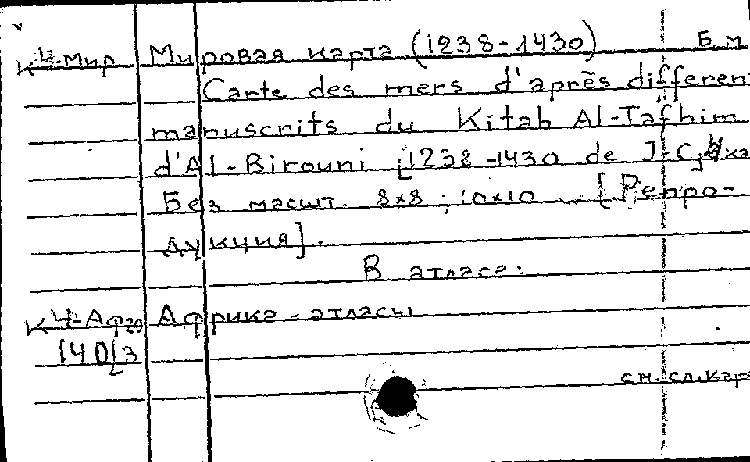 К4-Мир Мировая карта (1238-1430) Б.м
Carte des mers d'après differen
manuscrits du Kitab Al-Tafhim
d'Al-Birouni [1238-1430 de J-C]
Без масшт. 8x8; 10x10 [Репро-
дукция].
В атласе:
К4-Афр Африка - атласы
1403
см. сл. кар